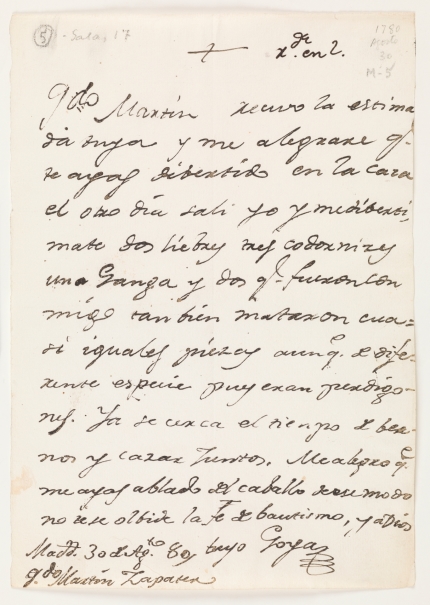 5 - Sala, 17
1780
Agosto
30
M-5
+ x.de en l.
q.do Martin recivo la estima
da tuya y me alegrare q.e
te ayas dibertido en la caza
el otro dia sali yo y me diberti,
mate dos liebres tres codornizes
una Ganga y dos q.e fueron con
migo tambien mataron cua-
si iguales piezas aunq.e de dife-
rente especie pues eran perdigo-
nes. Ya se cerca el tiempo de ber-
nos y cazar Juntos. Me alegro q.e
me ayas ablado del caballo de ese modo
no se olbide la fe de bautismo, y a Dios
Mad.d 30 de Ag.to 80, tuyo Goya
q.do Martin Zapater